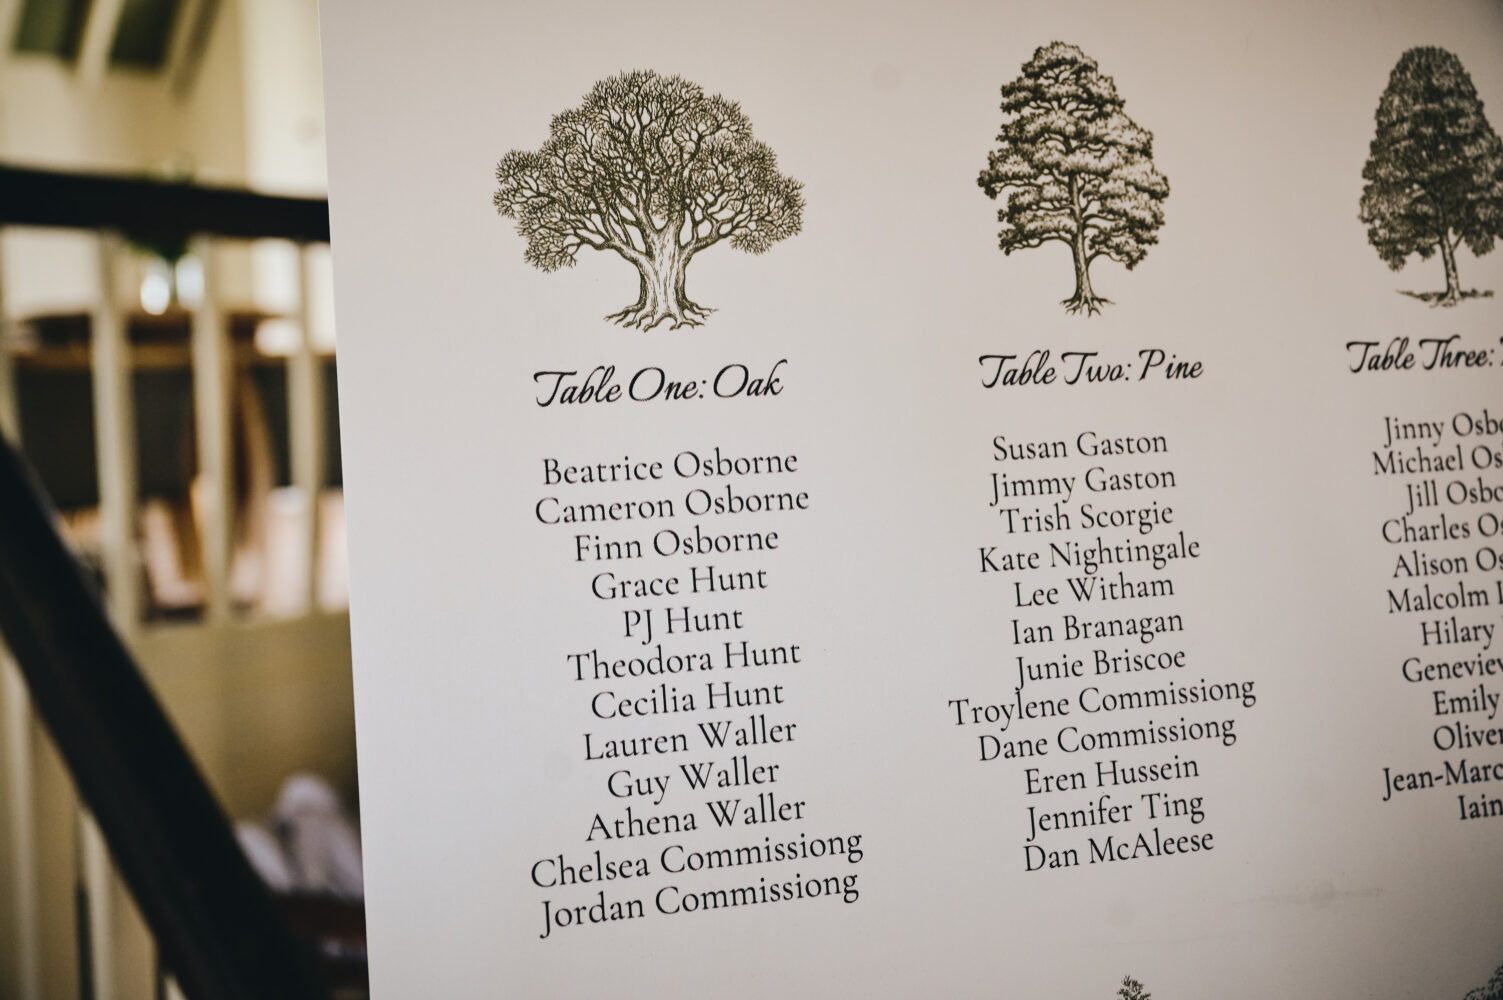 Table One: Oak
Beatrice Osborne
Cameron Osborne
Finn Osborne
Grace Hunt
PJ Hunt
Theodora Hunt
Cecilia Hunt
Lauren Waller
Guy Waller
Athena Waller
Chelsea Commissiong
Jordan Commissiong
Table Two: Pine
Susan Gaston
Jimmy Gaston
Trish Scorgie
Kate Nightingale
Lee Witham
Ian Branagan
Junie Briscoe
Troylene Commissiong
Dane Commissiong
Eren Hussein
Jennifer Ting
Dan McAleese
Table Three:
Jinny
Michael
Jill
Charles
Alison
Malcolm
Hilary
Emily
Iain